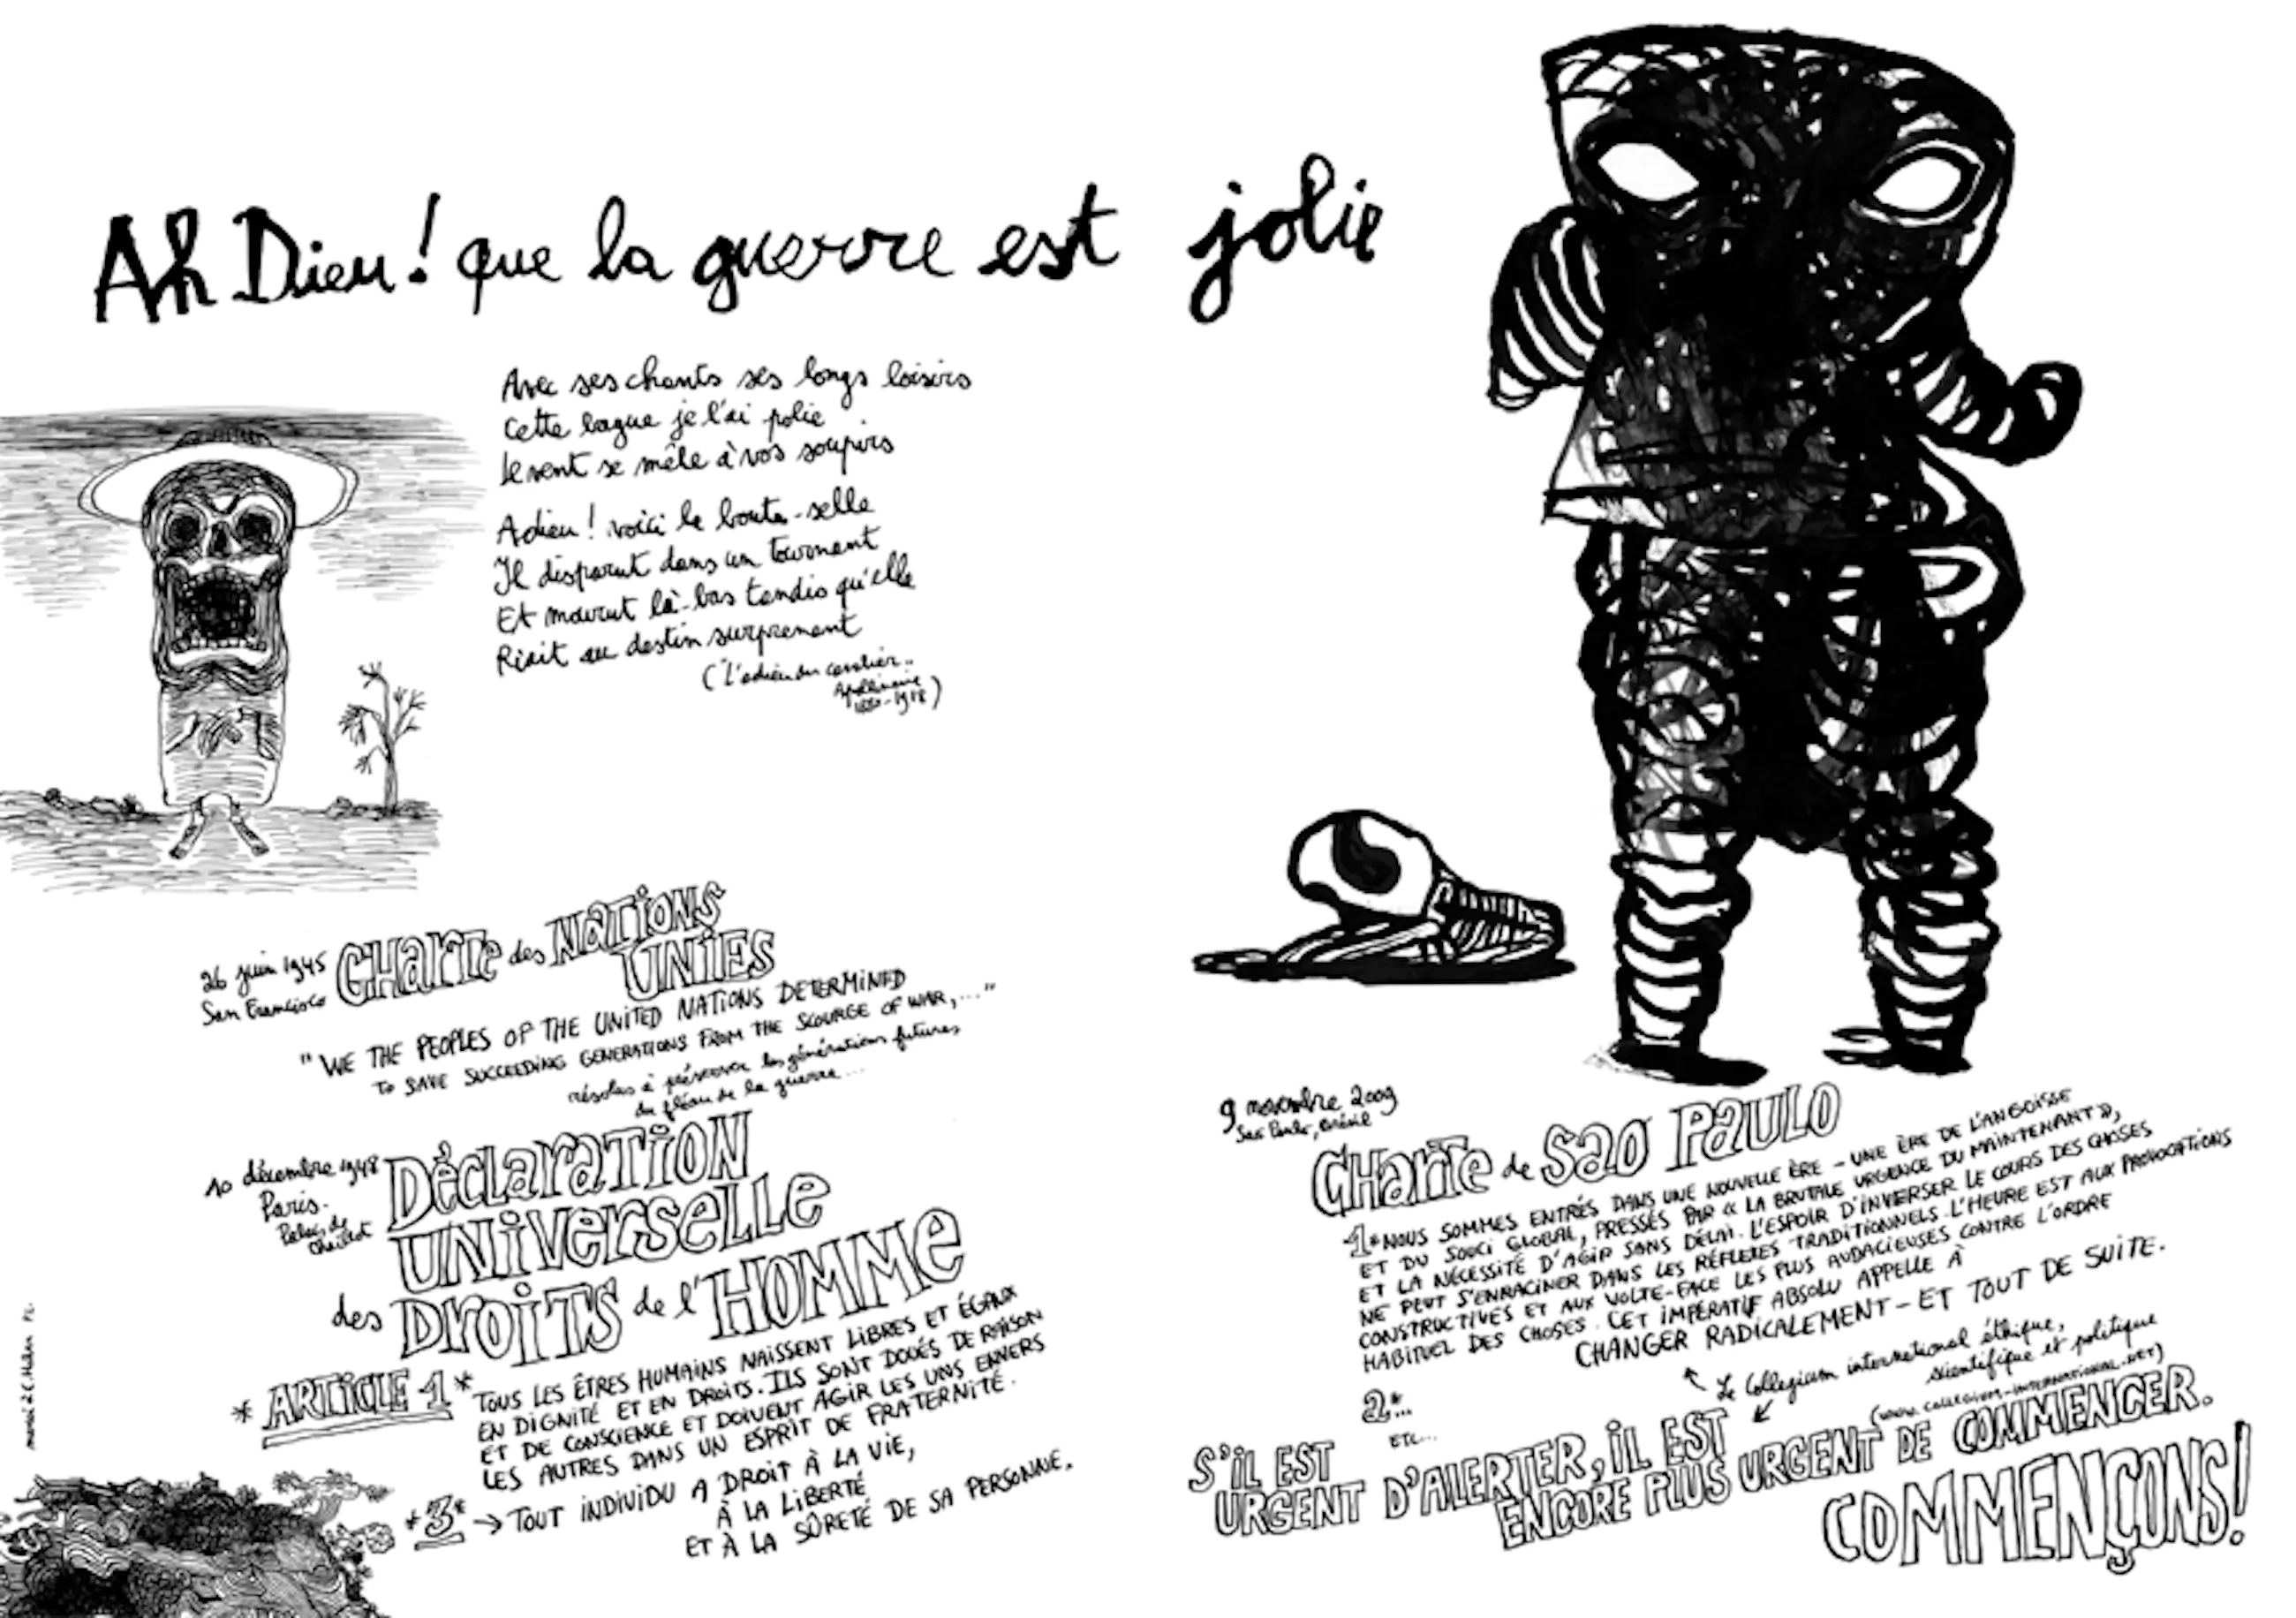 Ah Dieu! que la guerre est jolie
Avec ses chants ses longs loisirs
Cette bague je l'ai polie
le vent se mêle à vos soupirs
Adieu! voici le boute-selle
Il disparut dans un tournant
Et mourut là-bas tandis qu'elle
Riait au destin surprenant
("L'adieu du cavalier"
Apollinaire
1880-1918)
26 juin 1945
San Francisco
CHARTE des NATIONS
UNIES
"WE THE PEOPLES OF THE UNITED NATIONS DETERMINED
TO SAVE SUCCEEDING GENERATIONS FROM THE SCOURGE OF WAR,..."
résolus à préserver les générations futures
du fléau de la guerre...
10 décembre 1948
Paris.
Palais de
Chaillot
DÉCLARATION
UNIVERSELLE
des DROITS de l'HOMME
* ARTICLE 1 * TOUS LES ÊTRES HUMAINS NAISSENT LIBRES ET ÉGAUX
EN DIGNITÉ ET EN DROITS. ILS SONT DOUÉS DE RAISON
ET DE CONSCIENCE ET DOIVENT AGIR LES UNS ENVERS
LES AUTRES DANS UN ESPRIT DE FRATERNITÉ.
*3* → TOUT INDIVIDU A DROIT À LA VIE,
À LA LIBERTÉ
ET À LA SÛRETÉ DE SA PERSONNE.
9 novembre 2009
Sao Paulo, Brésil
CHARTE de SAO PAULO
1* NOUS SOMMES ENTRÉS DANS UNE NOUVELLE ÈRE - UNE ÈRE DE L'ANGOISSE
ET DU SOUCI GLOBAL, PRESSÉS PAR « LA BRUTALE URGENCE DU MAINTENANT »,
ET LA NÉCESSITÉ D'AGIR SANS DÉLAI. L'ESPOIR D'INVERSER LE COURS DES CHOSES
NE PEUT S'ENRACINER DANS LES RÉFLEXES TRADITIONNELS. L'HEURE EST AUX PROVOCATIONS
CONSTRUCTIVES ET AUX VOLTE-FACE LES PLUS AUDACIEUSES CONTRE L'ORDRE
HABITUEL DES CHOSES. CET IMPÉRATIF ABSOLU APPELLE À
CHANGER RADICALEMENT - ET TOUT DE SUITE.
Le Collegium international éthique,
scientifique et politique
(www.collegium-international.net)
2*...
ETC...
S'IL EST
URGENT D'ALERTER, IL EST
ENCORE PLUS URGENT DE COMMENCER.
COMMENÇONS!